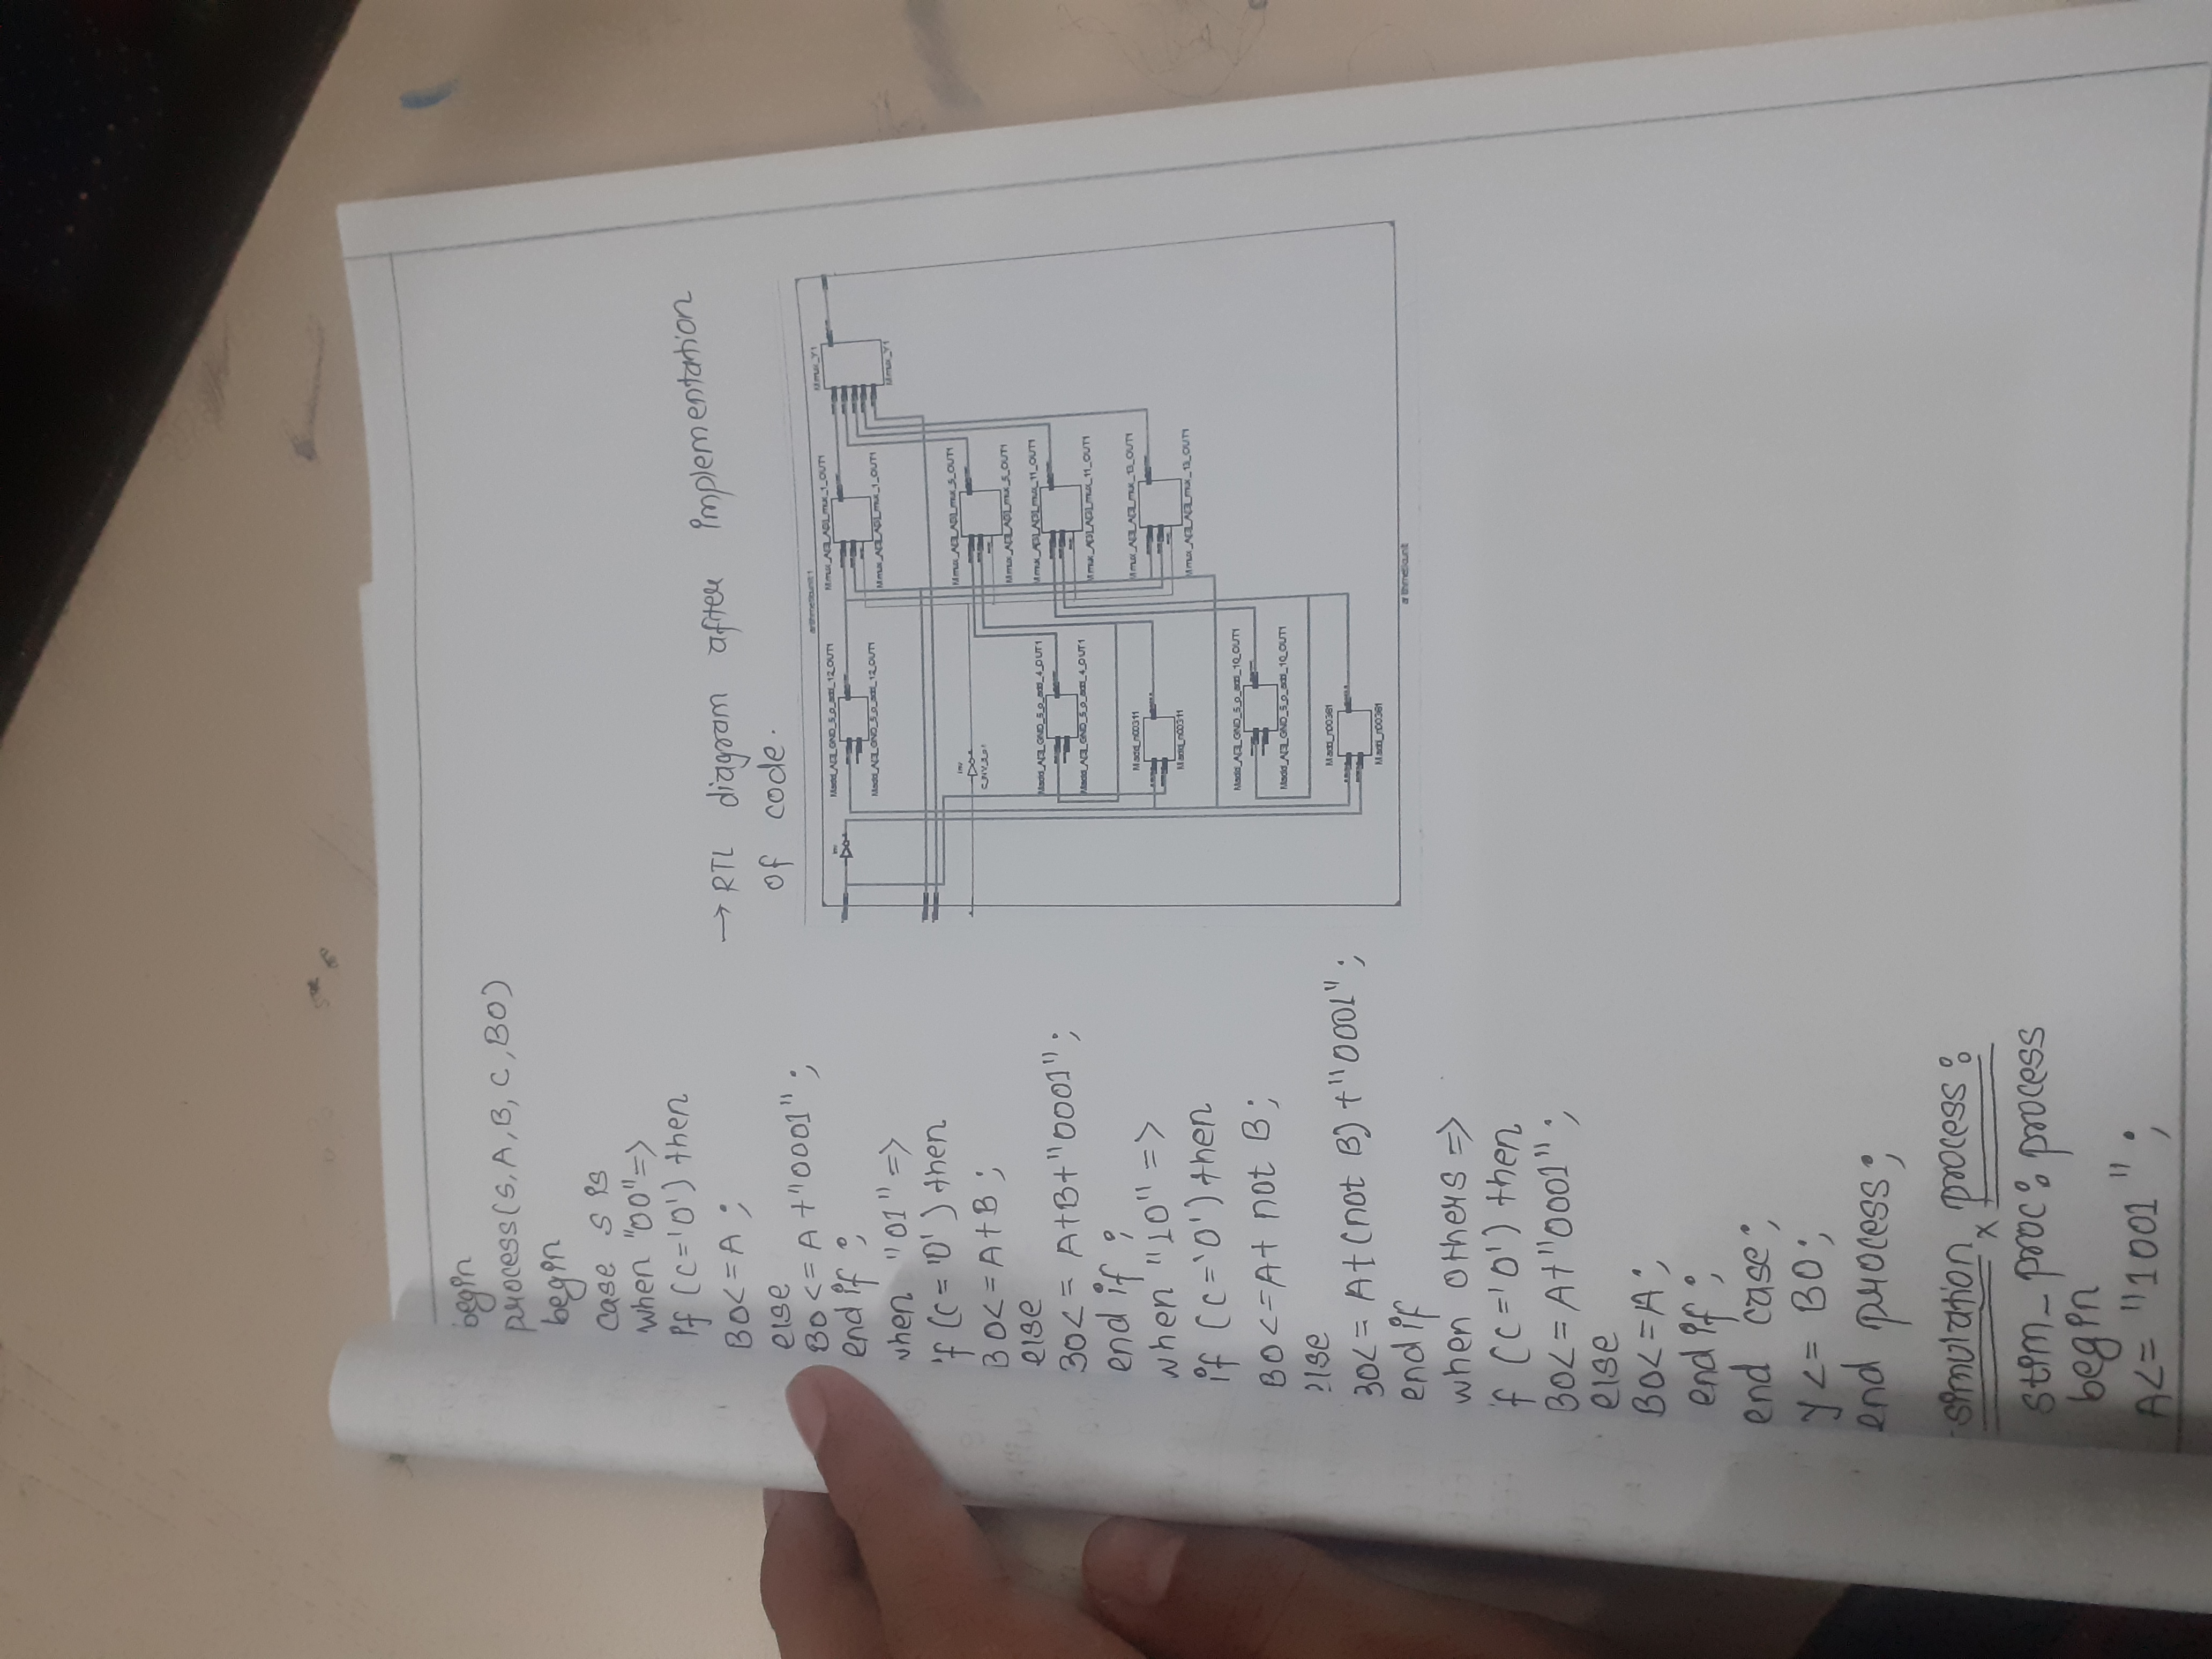 begin
process(S, A, B, C, BO)
begin
case s is
when "00"=>
if (c='0') then
BO<=A;
else
BO<=A+"0001";
end if;
when "01"=>
if (c='0') then
BO<=A+B;
else
BO<= A+B+"0001";
end if;
when "10"=>
if (c='0') then
BO<=A+ not B;
else
BO<= A+(not B)+"0001";
end if
when others=>
if (c='0') then
BO<=A+"0001";
else
BO<=A;
end if;
end case;
y<= BO;
end process;
simulation process:
stim_proc: process
begin
A<= "1001";
→ RTL diagram after implementation
of code.
arithmeticunit:1
inv
Madd_A[3]_GND_5_o_add_12_OUT1
Madd_A[3]_GND_5_o_add_12_OUT1
Mmux_A[3]_A[3]_mux_1_OUT1
Mmux_A[3]_A[3]_mux_1_OUT1
Mmux_Y1
Mmux_Y1
inv
Mmux_A[3]_A[3]_mux_5_OUT1
Mmux_A[3]_A[3]_mux_5_OUT1
Madd_A[3]_GND_5_o_add_4_OUT1
Madd_A[3]_GND_5_o_add_4_OUT1
Mmux_A[3]_A[3]_mux_11_OUT1
Mmux_A[3]_A[3]_mux_11_OUT1
Madd_n00311
Madd_n00311
Mmux_A[3]_A[3]_mux_13_OUT1
Mmux_A[3]_A[3]_mux_13_OUT1
Madd_A[3]_GND_5_o_add_10_OUT1
Madd_A[3]_GND_5_o_add_10_OUT1
Madd_n00361
Madd_n00361
arithmeticunit